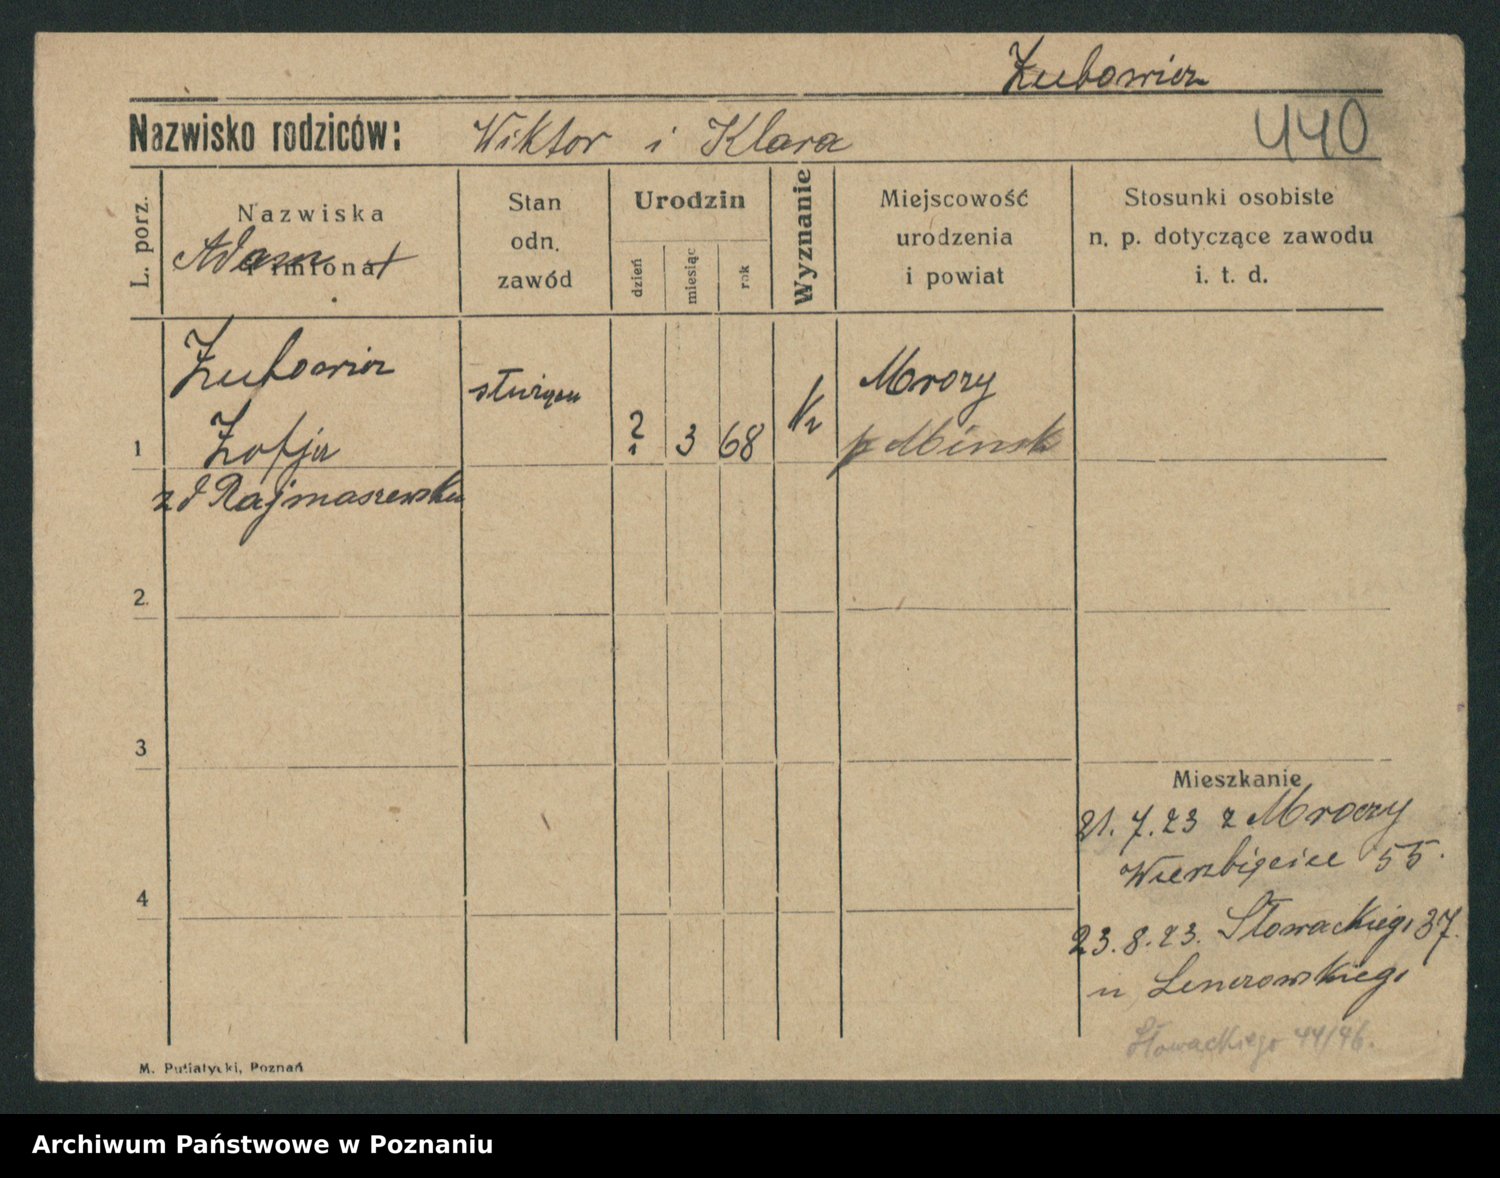 Zubowicz
Nazwisko rodziców: Wiktor i Klara 440
L. porz.
Nazwiska
Adam imiona +
Stan
odn.
zawód
Urodzin
dzień miesiąc rok
Wyznanie
Miejscowość
urodzenia
i powiat
Stosunki osobiste
n. p. dotyczące zawodu
i. t. d.
1 Zubowicz
Zofja
zd Rajmaszewska
służąca
? 3 68
Mroczy
p Mińsk
2.
3
4
Mieszkanie
21. 7. 23 z Mroczy
Wierzbięcice 55.
23. 8. 23. Słowackiego 37.
u Lenczowskiego
Słowackiego 44/46.
M. Putiatycki, Poznań
Archiwum Państwowe w Poznaniu